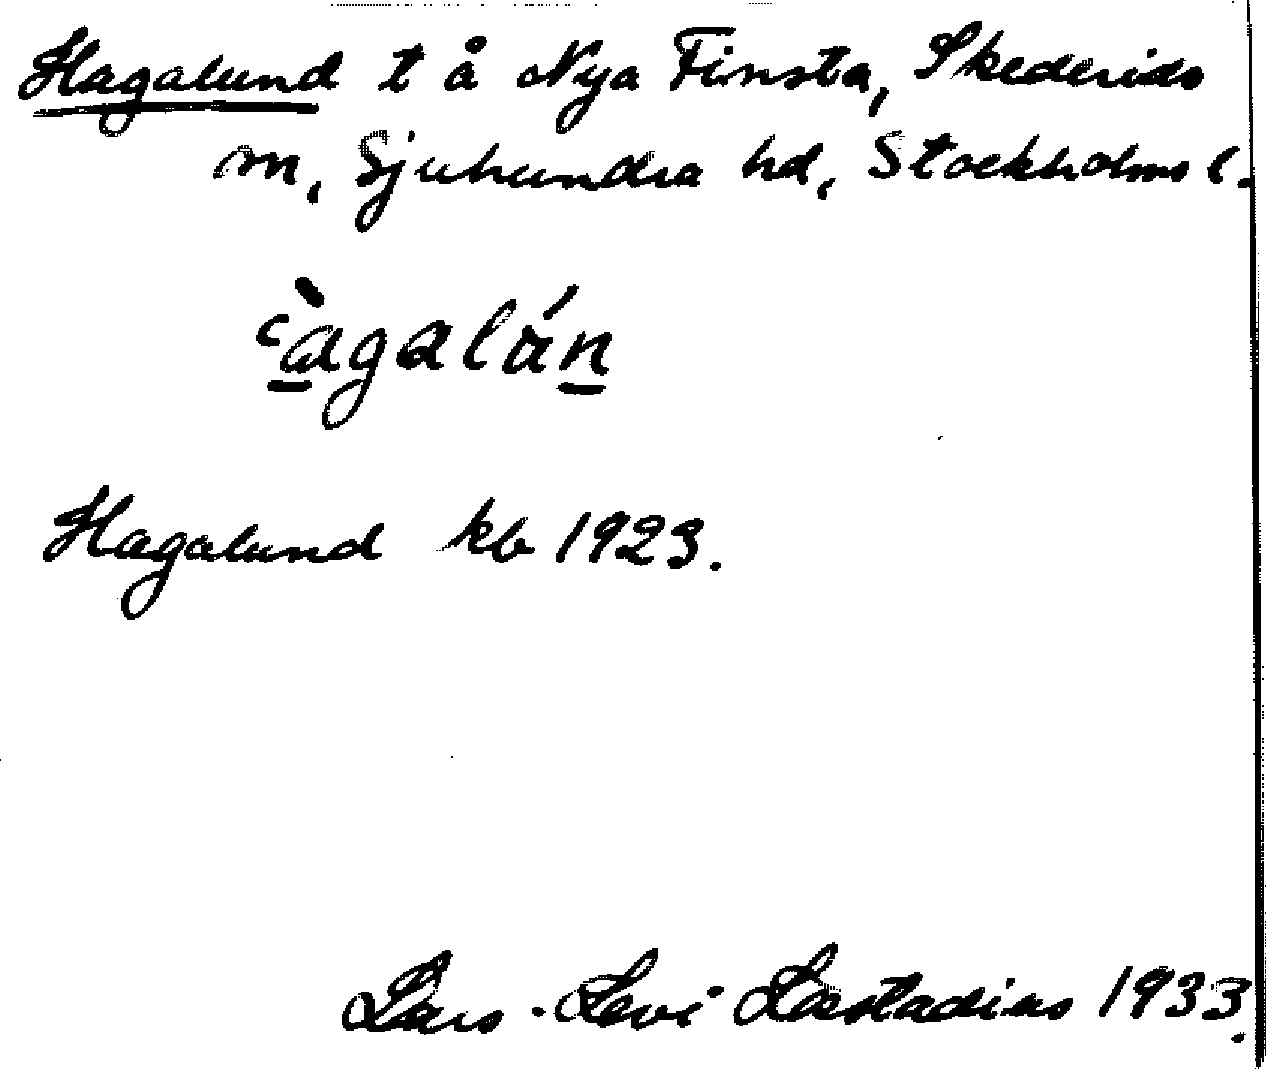 Hagalund t å Nya Finsta, Skederids
sn, Sjuhundra hd, Stockholms l.
ʿàgalán
Hagalund kb 1923.
Lars-Levi Læstadius 1933.